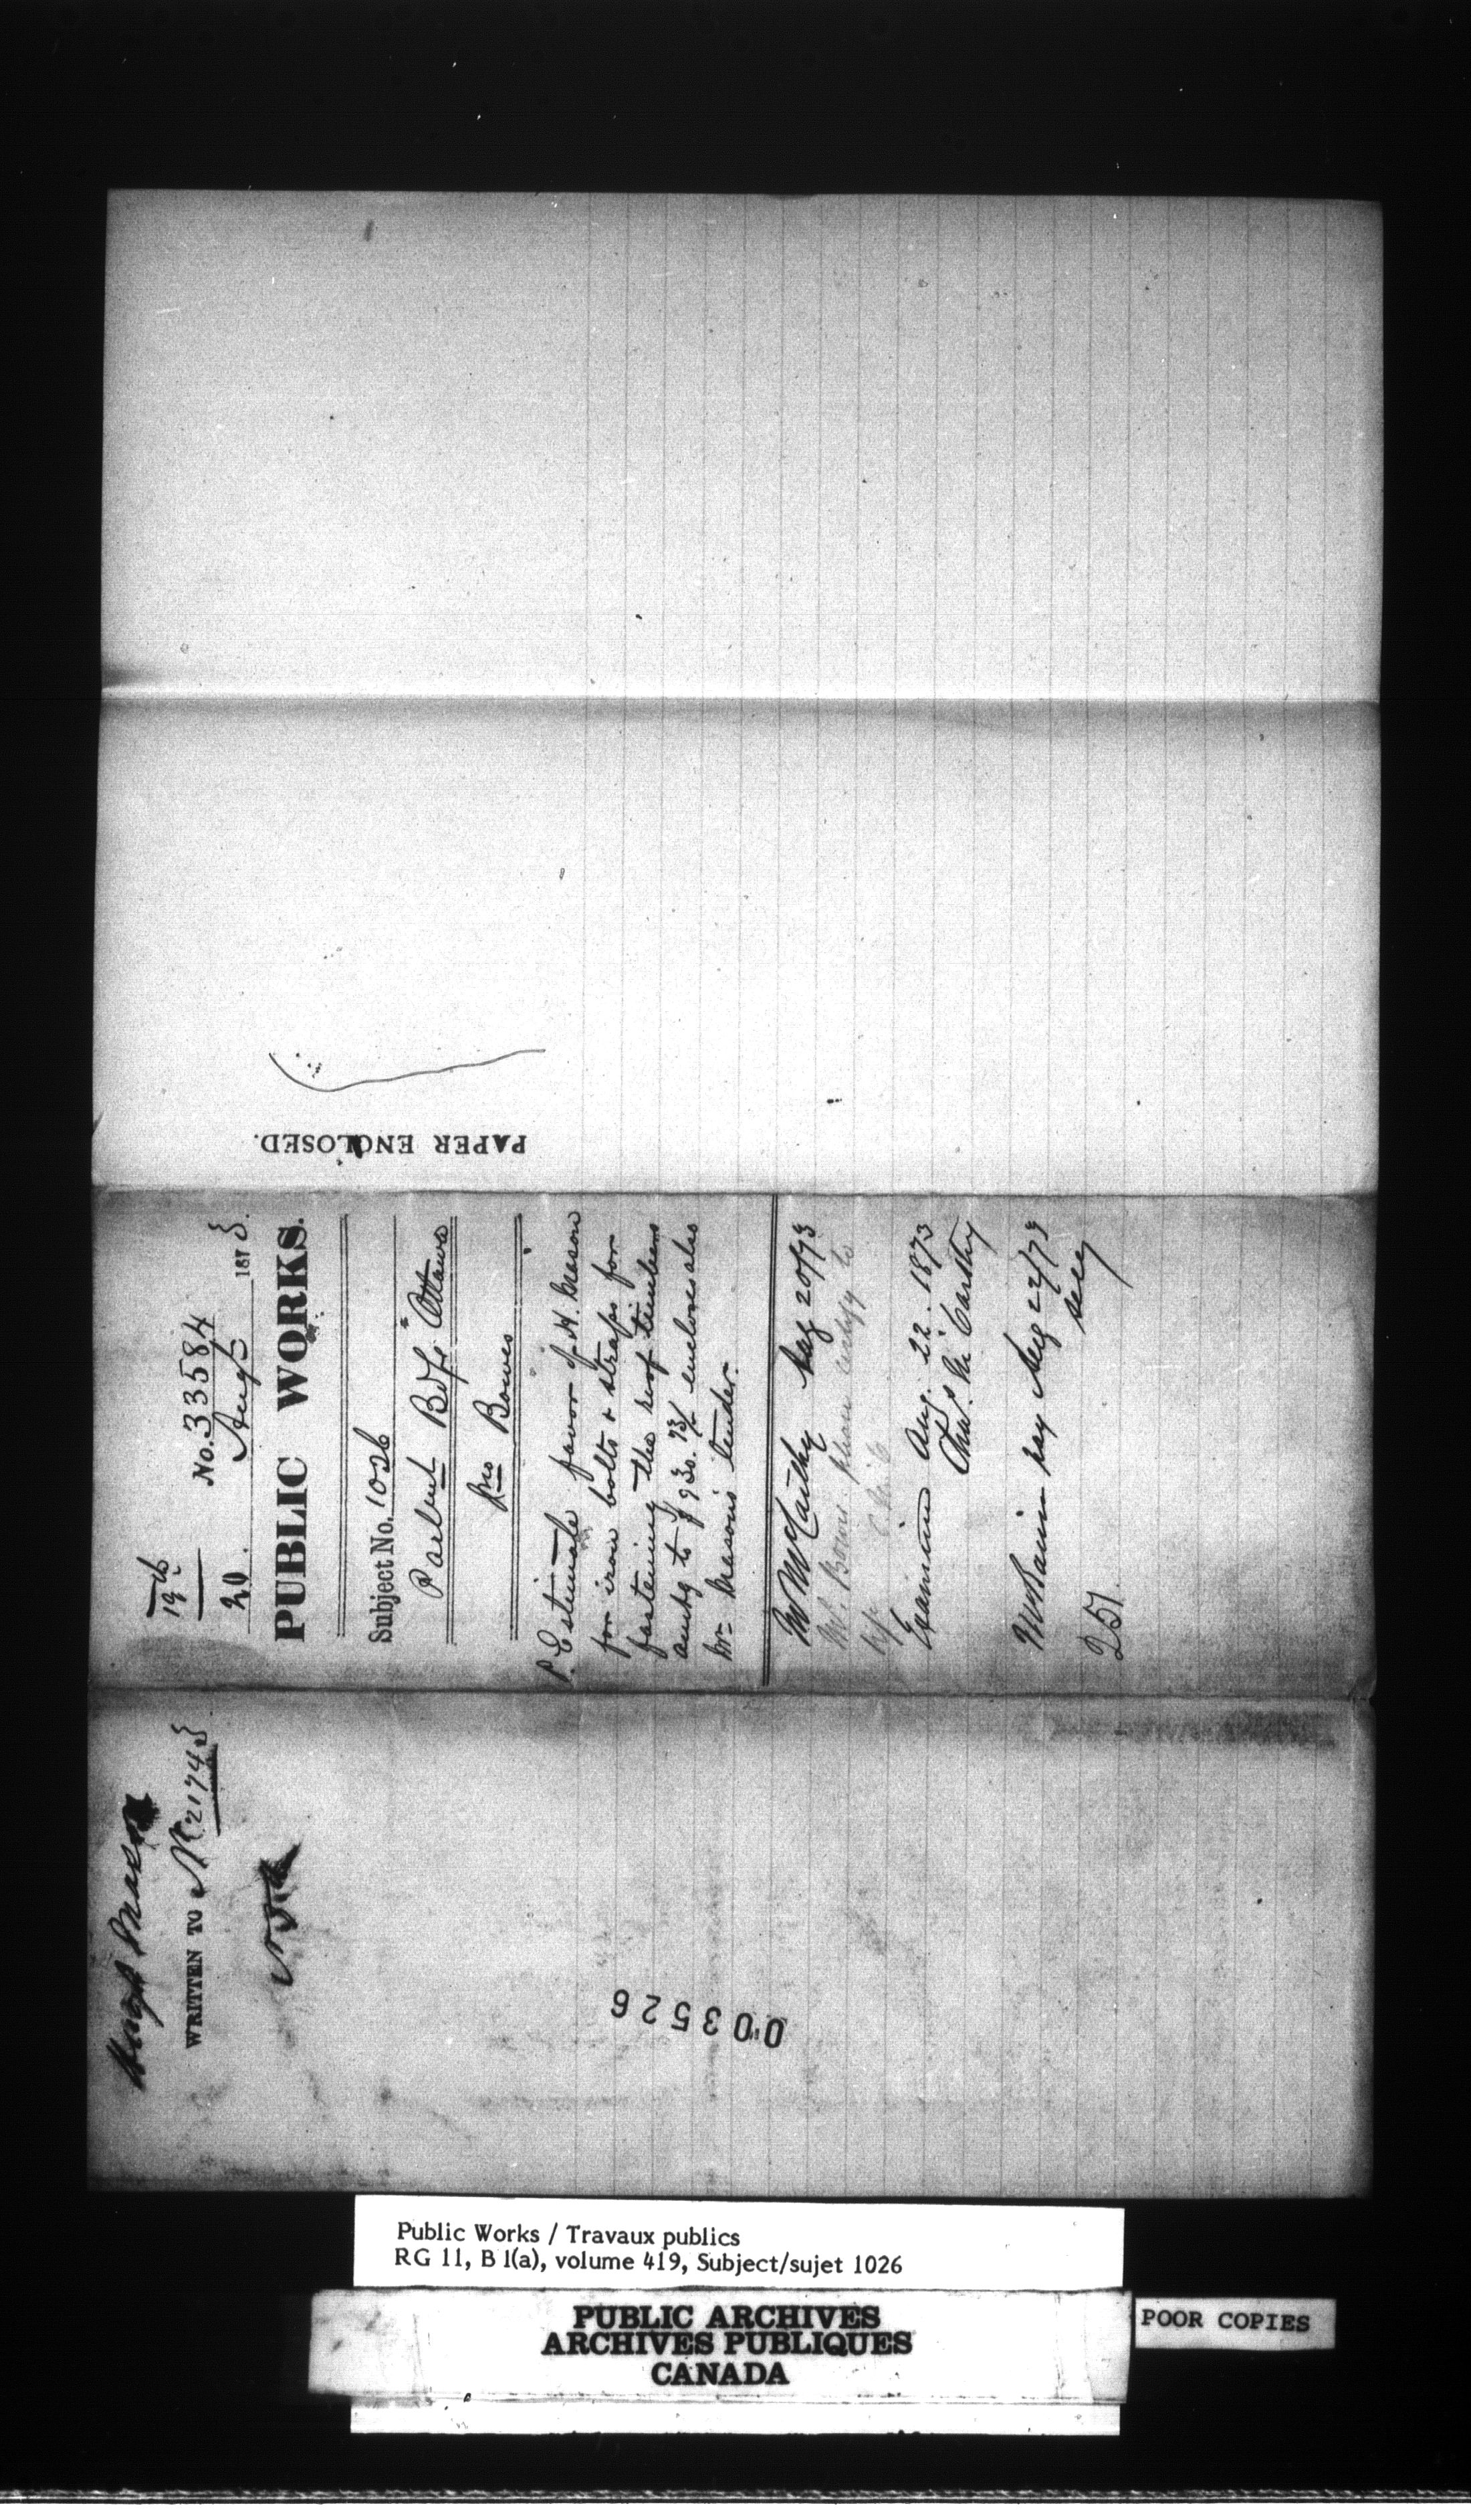 19th
No. 33584
20 Augt 1873.
PUBLIC WORKS.
Subject No. 1026
Parlmt Bdgs Ottawa
Jno Bowes
P. Estimate favor of H. Mason
for iron bolts & straps for
fastening the roof timbers
amtg to $ 930. encloses also
Mr Masons tender.
Mr McCarthy Aug 20/73
Mr. Bowes please certify to
Examined Aug. 22. 1873
Thos. McCarthy
pay Aug 22/73
251.
PAPER ENCLOSED.
Hugh Mason
WRITTEN TO No 21743
003526
Public Works / Travaux publics
RG 11, B 1(a), volume 419, Subject/sujet 1026
PUBLIC ARCHIVES
ARCHIVES PUBLIQUES
CANADA
POOR COPIES